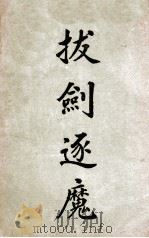 拔劍逐魔